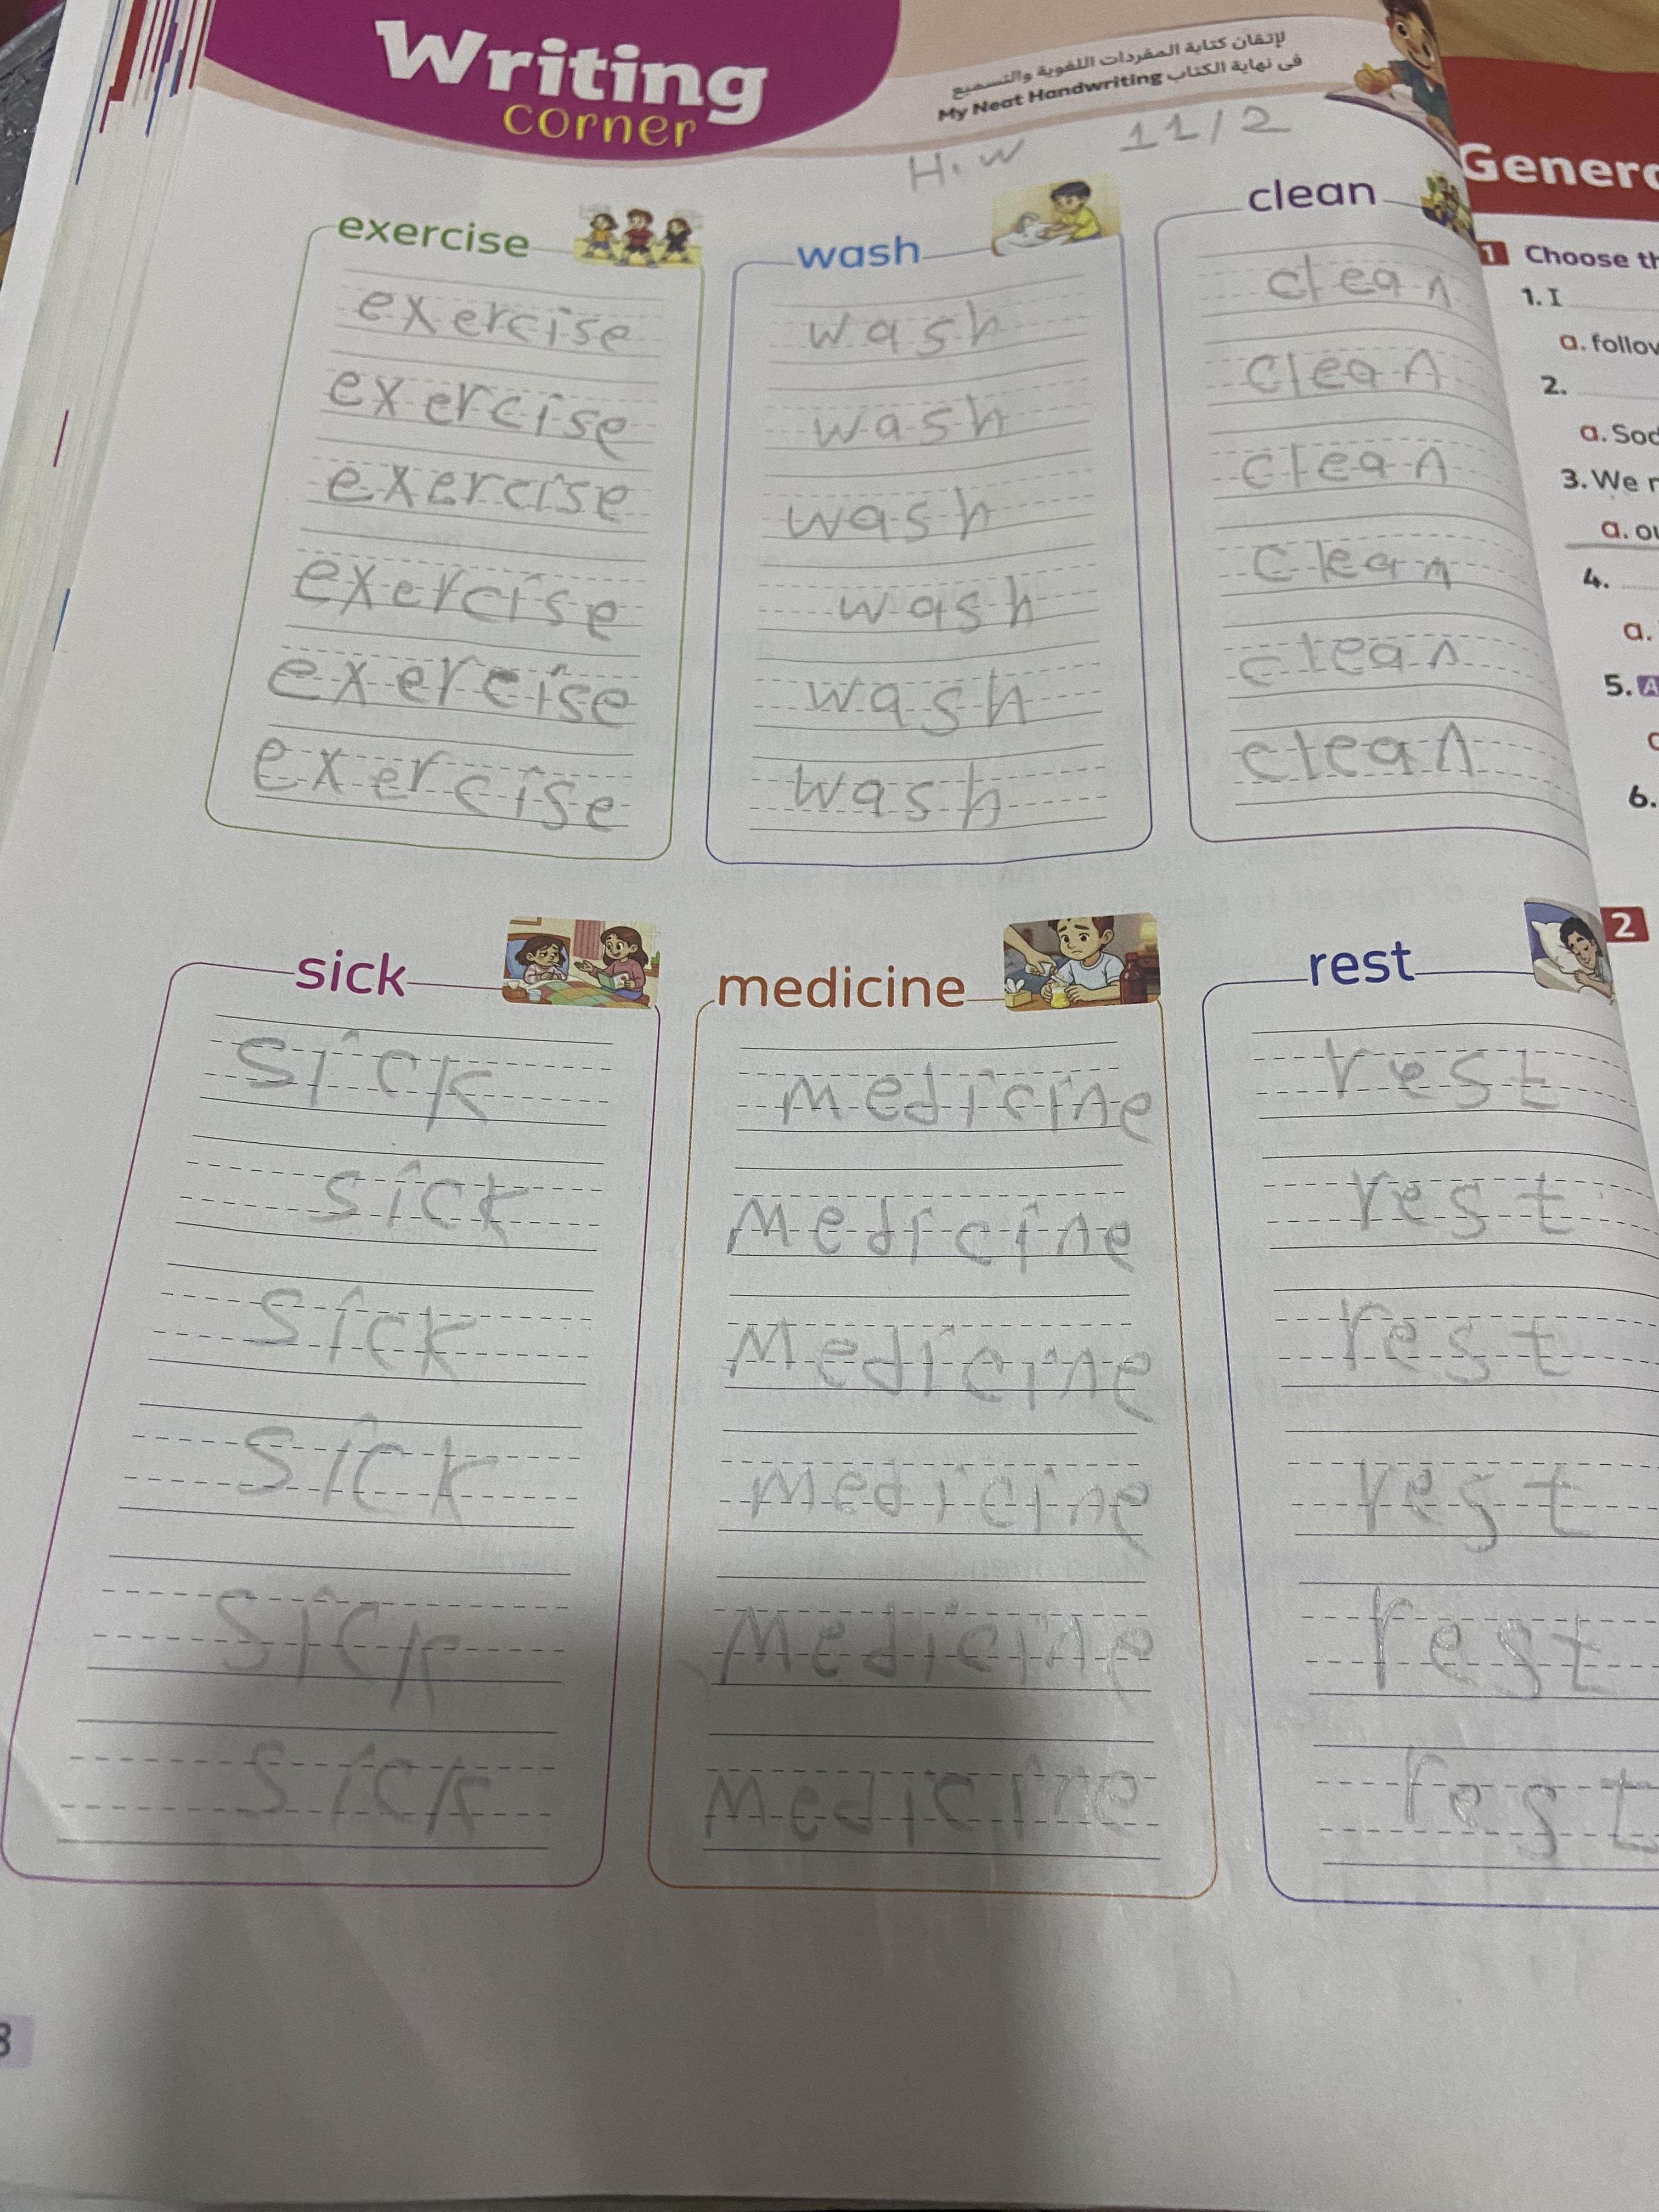 Writing
corner
لإتقان كتابة المفردات اللغوية والتسميع
فى نهاية الكتاب My Neat Handwriting
H.W 11/2
exercise
exercise
exercise
exercise
exercise
exercise
exercise
wash
wash
wash
wash
wash
wash
wash
clean
clean
clean
clean
clean
clean
clean
sick
sick
sick
sick
sick
sick
sick
medicine
medicine
medicine
medicine
medicine
medicine
medicine
rest
rest
rest
rest
rest
rest
rest
1 Choose
1. I
a. follow
2.
a.
3. We
a.
4.
a.
5. A
6.
2